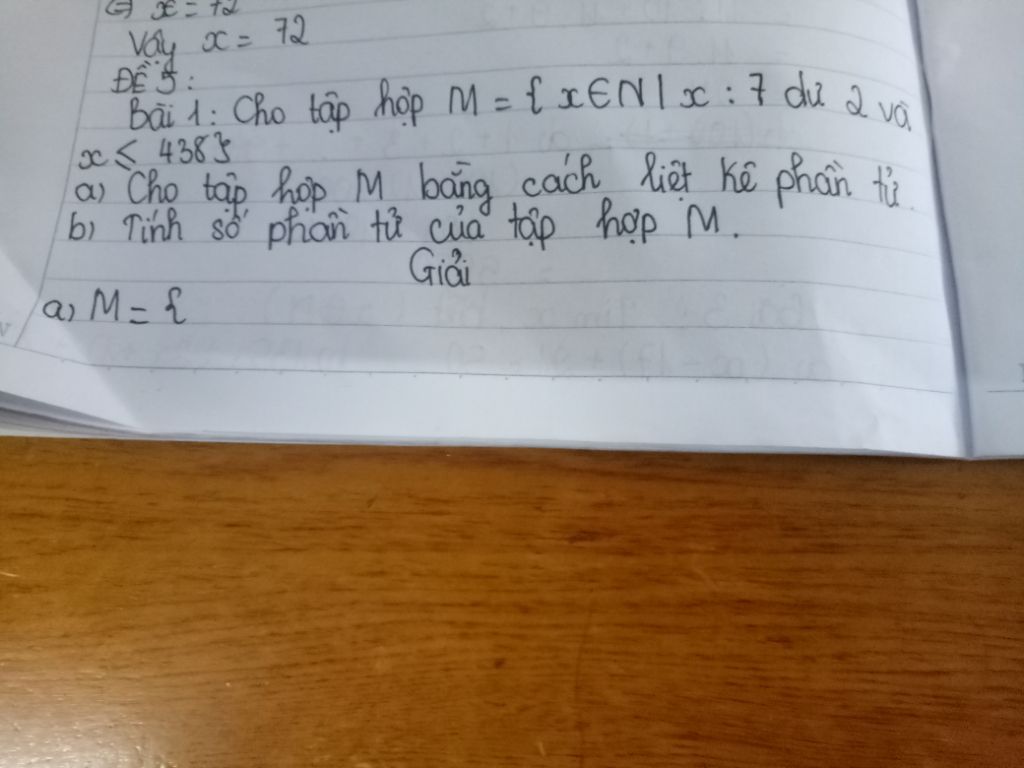 (=) x = 72
Vậy x = 72
ĐỀ 5:
Bài 1: Cho tập hợp M = { x ∈ N | x : 7 dư 2 và
x ≤ 438}
a) Cho tập hợp M bằng cách liệt kê phần tử.
b) Tính số phần tử của tập hợp M.
Giải
a) M = {